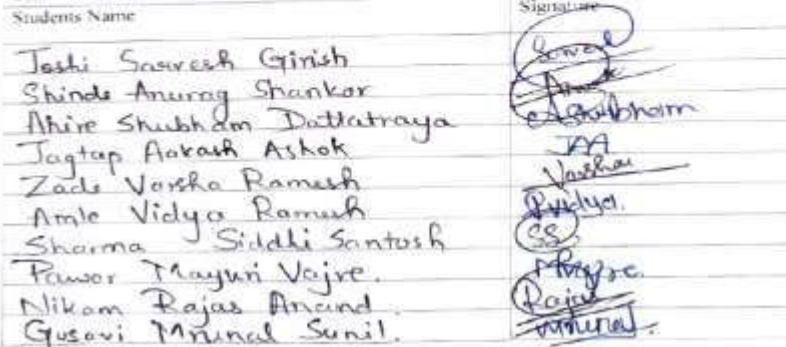 Students Name Signature
Joshi Sarvesh Girish
Shinde Anurag Shankar
Ahire Shubham Dattatraya AShubham
Jagtap Aakash Ashok JAA
Zade Varsha Ramesh Varsha
Amle Vidya Ramesh Rvidya.
Sharma Siddhi Santosh SS
Pawar Mayuri Vajre.
Nikam Rajas Anand. Rajas
Gusavi Mrunal Sunil. Mrunal.